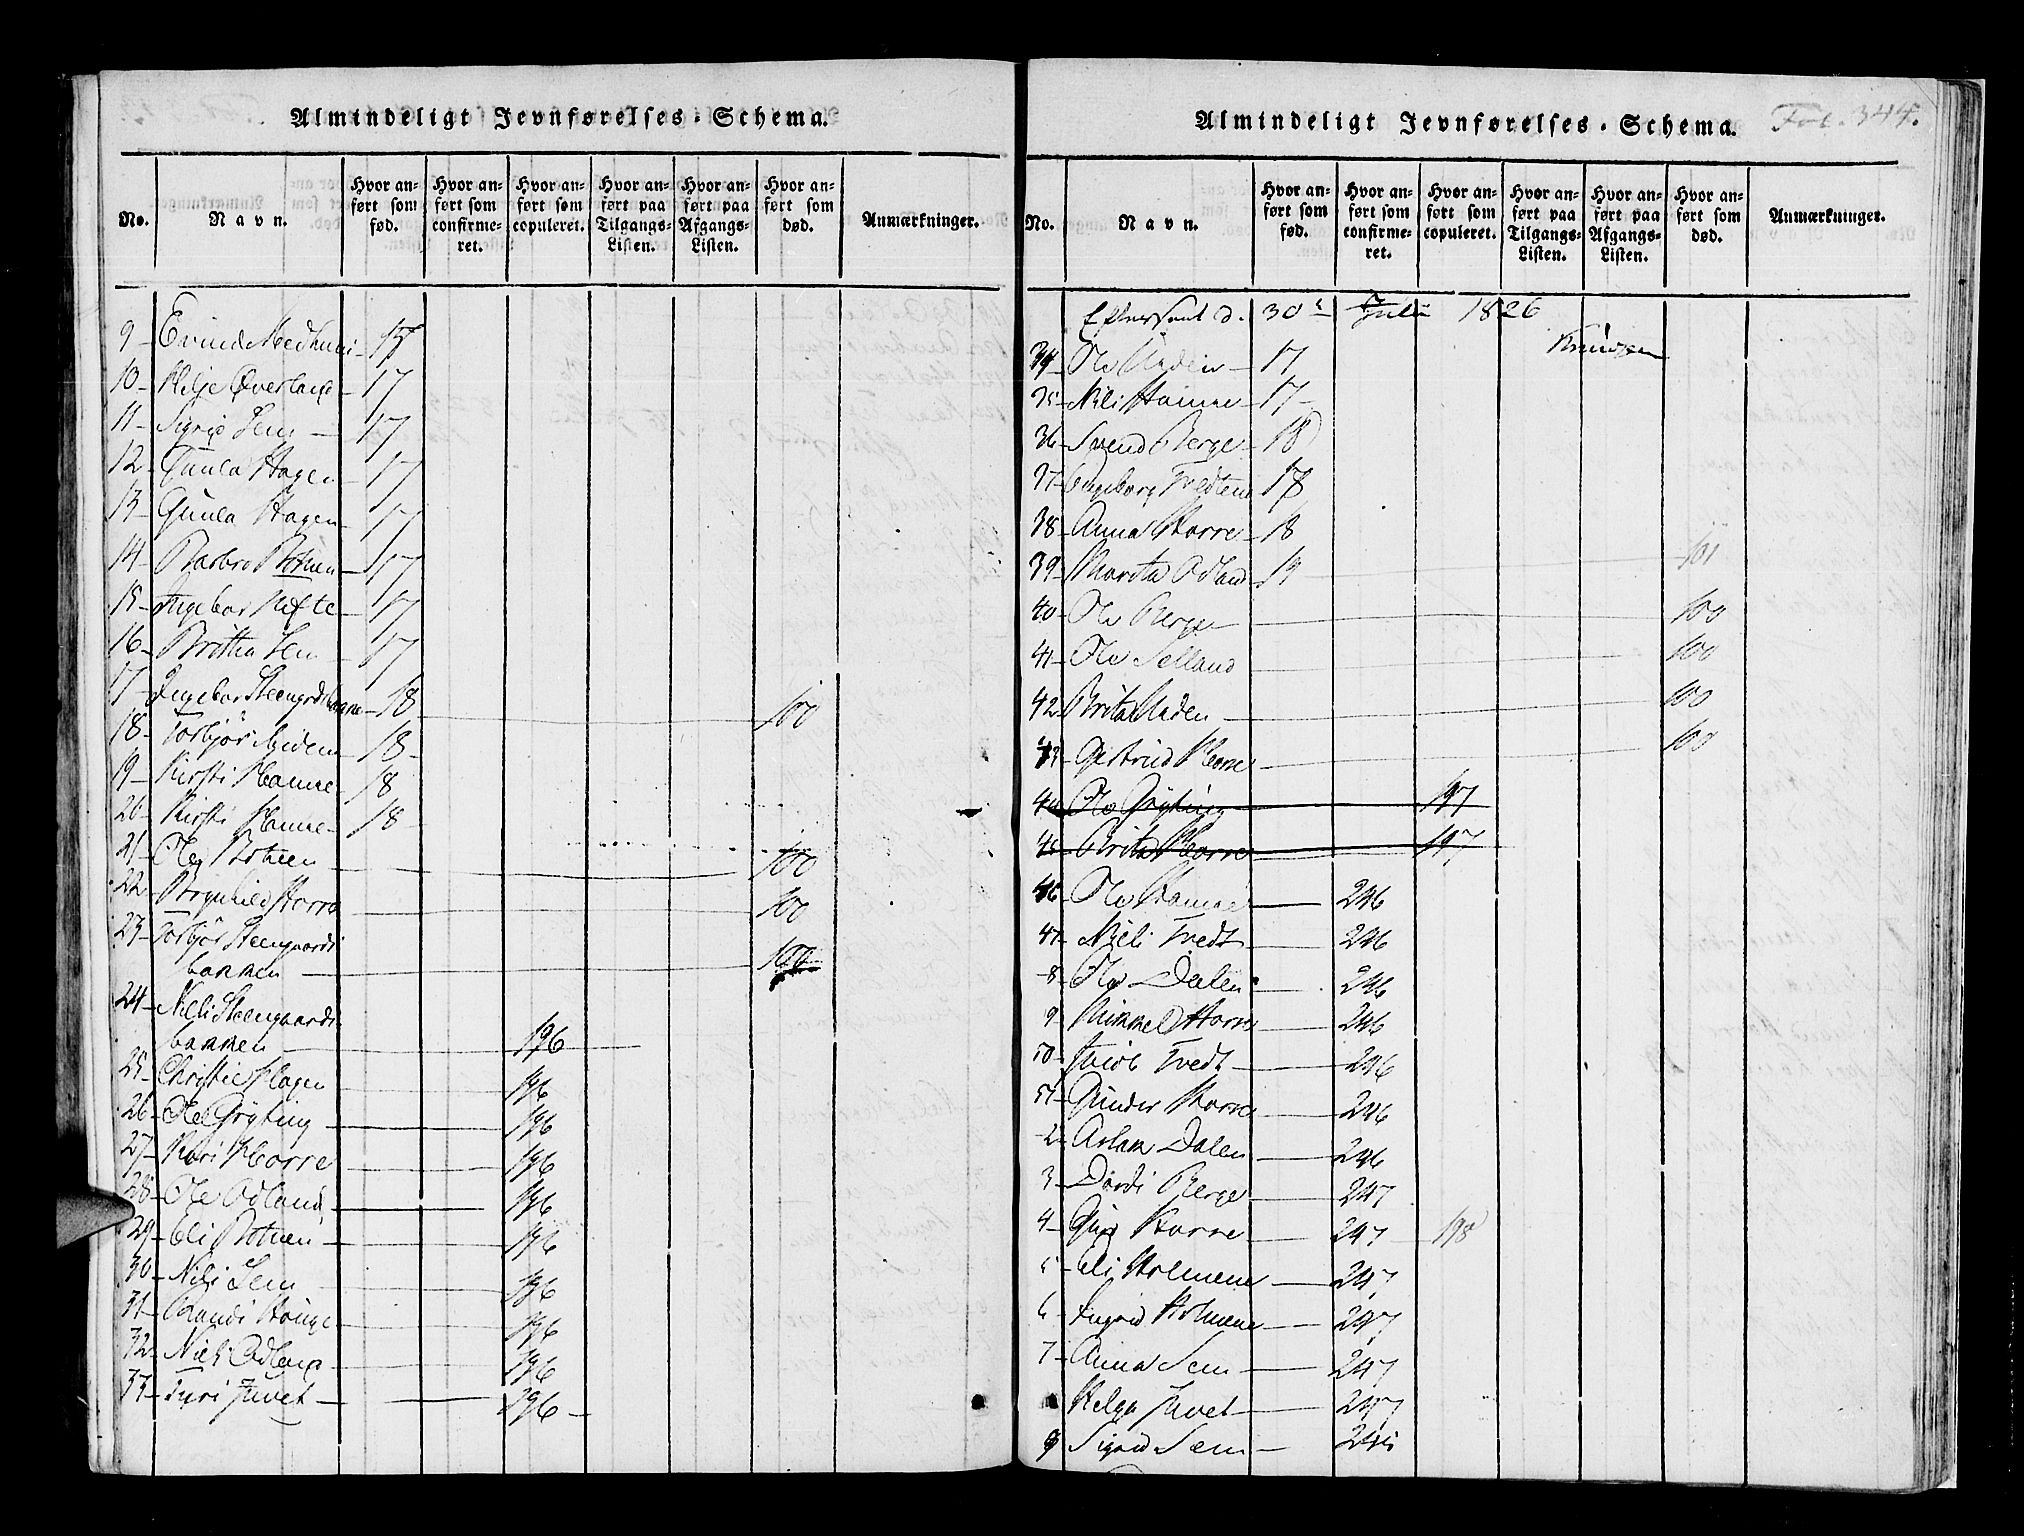 Almindeligt Jevnførelses-Schema.
No. Navn. Hvor anført som fød. Hvor anført som confirmeret. Hvor anført som copuleret. Hvor anført paa Tilgangs-Listen. Hvor anført paa Afgangs-Listen. Hvor anført som død. Anmærkninger.
9 17
10 Helje Øverland 17
11 Sigrid Sem 17
12 Gunla Hagen 17
13 Gunla Hagen 17
14 Barbro Botnen 17
15 Ingebor Tufte 17
16 Britha Sem 17
17 Ingebor 18 100
18 Torbjør 18
19 Kirsti Hamre 18
20 Kirsti Hamre 18
21 Oley Botnen 100
22 Brynhild Horre 100
23 Torbjør Steengaards
bakken 100
24 Nilli Steengaards
bakken 196
25 Christie Hagen 196
26 Ole Grøting 196
27 Kari Horre 196
28 Ole Odland 196
29 Eli Botnen 196
30 Nili Sem 196
31 Randi Houge 196
32 Niels Odland 196
33 Turi Juvet 196
Almindeligt Jevnførelses-Schema. Fol. 344.
No. Navn. Hvor anført som fød. Hvor anført som confirmeret. Hvor anført som copuleret. Hvor anført paa Tilgangs-Listen. Hvor anført paa Afgangs-Listen. Hvor anført som død. Anmærkninger.
Efterseet d. 30 Juli 1826
34 Ole 17
35 Nili Hamre 17
36 Svend Berge 18
37 Ingeborg Tvedten 18
38 Anna Horre 18
39 Marita Odland 19 101
40 Ole Berge 100
41 Ole Selland 100
42 Brita 100
43 Gertrud Horre 100
44 Ole Grøting 197
45 Brita Horre 197
46 Ole Hamre 246
47 Nieli Tvedt 246
8 Ole Dalen 246
9 Mikkel Horre 246
50 Jacob Tvedt 246
51 Gunder Horre 246
2 Aslak Dalen 246
3 Dordi Berge 247
4 Guri Horre 247 198
5 Eli Holmene 247
6 Ingrid Holmene 247
7 Anna Sem 247
Helga Juvet 247
9 Sigrid Sem